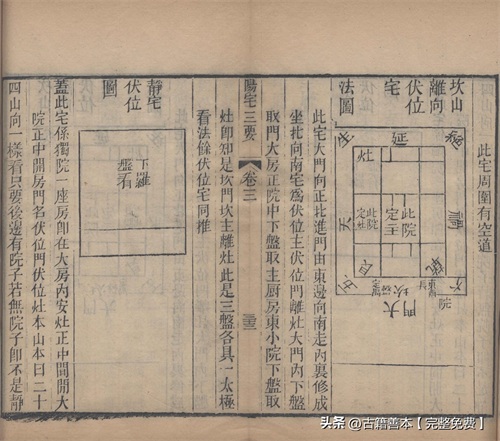 此宅周圍有空道
坎山
離向
伏位
宅
法圖
延
生
灶
此院
定主
此院
定灶
天
坎
大門
院
此宅大門向正北進門由東邊向南走內裏修成
坐北向南宅為伏位主伏位門離灶大門內下盤
取門大房正院中下盤取主厨房東小院下盤取
灶即知是坎門坎主離灶此是三盤各具一太極
看法餘伏位宅同推
陽宅三要 卷三
靜宅
伏位
圖
下羅
盤看
蓋此宅係獨院一座房即在大房內安灶正中間開大
院正中開房門名伏位門伏位灶本山本曰二十
四山向一樣看只要後邊有院子若無院子即不是靜
头条 @古籍善本【完整免费】